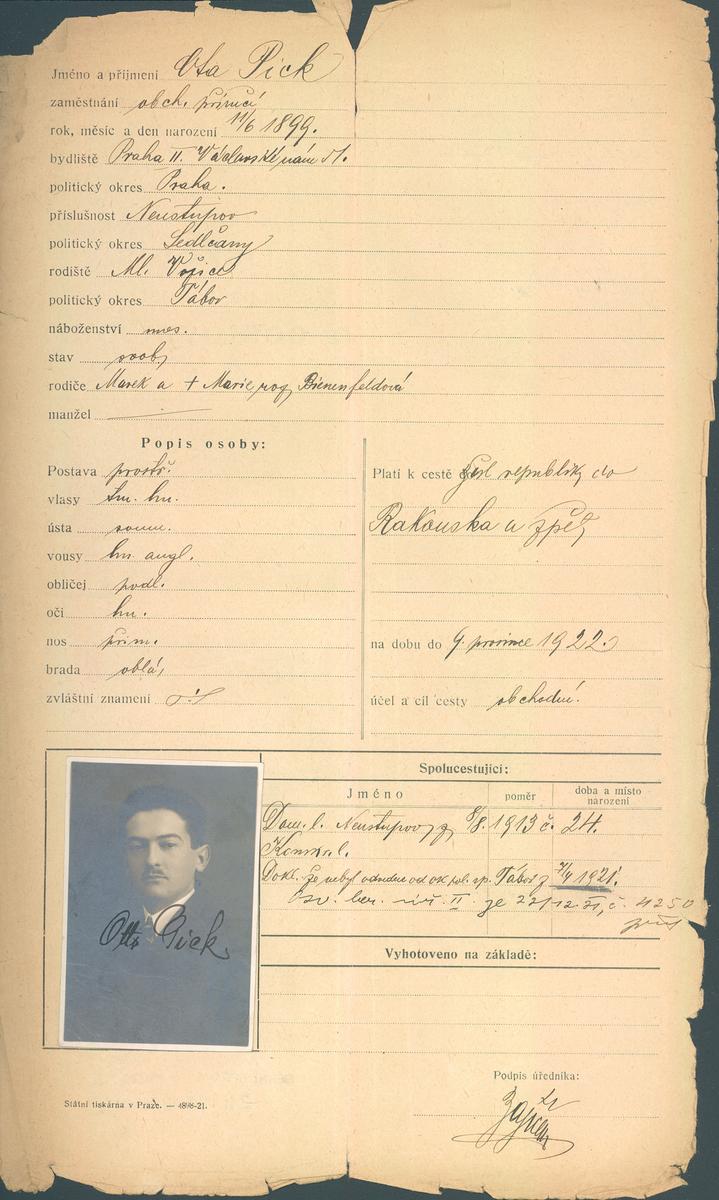 Jméno a příjmení Ota Pick
zaměstnání obch. příručí
rok, měsíc a den narození 11/6 1899.
bydliště Praha II. Václavské nám 51.
politický okres Praha.
příslušnost Neustupov
politický okres Sedlčany
rodiště Ml. Vožice
politický okres Tábor
náboženství mos.
stav svob.
rodiče Marek a + Marie roz. Bienenfeldová
manžel
Popis osoby:
Postava prostř.
vlasy tm. hn.
ústa soum.
vousy hn. angl.
obličej podl.
oči hn.
nos přim.
brada oblá,
zvláštní znamení
Platí k cestě republiky do
Rakouska a zpět
na dobu do 9. prosince 1922.
účel a cíl cesty obchodní.
Spolucestující:
Jméno poměr doba a místo narození
Dom. l. Neustupov z 8/8. 1913 č. 24.
Konskr. l.
Dokl. že nebyl odveden od ok. pol. sp. Tábor z 7/4 1921.
II. ze 22/12.21, č. 4250
Otto Pick
Vyhotoveno na základě:
Podpis úředníka:
Státní tiskárna v Praze. — 1898-21.